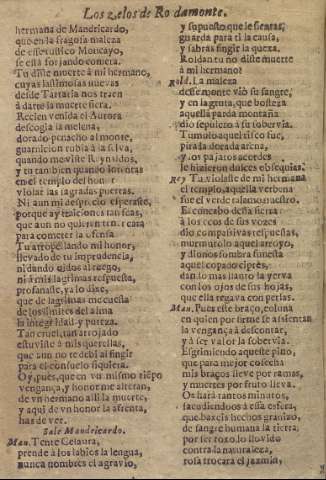 Los zelos de Rodamonte.
hermana de Mandricardo,
que en la fragosa maleza
de esse rustico Moncayo,
se està forjando contera.
Tu diste muerte à mi hermano,
cuyas lastimosas nuevas
desde Tartaria nos traen
à darte la muerte fiera.
Recien venida el Aurora
descogia la melena,
dorado penacho al monte,
guarnicion rubia à la silva,
quando me viste
y tu tambien quando
en el templo del honor
violar las sagradas puertas.
Ni aun mi desprecio esperaste,
porque ay traiciones tan feas,
que aun no quieren tener cara
para cometer la ofensa.
Tu atropellando mi honor,
llevado de tu imprudencia,
ni dando oidos al ruego,
ni à mis lagrimas respuesta,
profanaste, ya lo dixe,
que de lagrimas me cuesta
de los limites del alma
la integridad y pureza.
Tan cruel, tan arrojado
estuviste à mis querellas,
que aun no te debì al fingir
para el consuelo siquiera.
Oy, pues, que en vn mismo riesgo
vengança, y honor me alteran,
de vn hermano alli la muerte,
y aqui de vn honor la afrenta,
has de ver.
Sale Mandricardo.
Man. Tente Celaura,
prende à los labios la lengua,
nunca nombres el agravio,
y supuesto que le sientas,
guarda para ti la causa,
y sabràs fingir la queza.
Roldan tu no diste muerte
à mi hermano?
Rold. La maleza
desse monte viò su sangre,
y en la gruta, que bosteza
aquella parda montaña
diò sepulcro à su sobervia.
Tumulo aquel risco fue,
pira la dorada arena,
y los pajaros acordes
le hizieron dulces obsequias.
Rey Tu violaste de mi hermana
el templo, aquella verbena
fue el verde talamo nuestro.
El concabo desta sierra
à los ecos de sus vozes
diò compassivas respuestas,
murmuròlo aquel arroyo,
y dionos sombra funesta
aquel copado ciprès,
dando mas llanto la yerva
con los ojos de sus hojas,
que ella regava con perlas.
Man. Pues este braço, coluna
en quien por firme se assientan
la vengança à descontar,
y à ser valor la sobervia.
Esgrimiendo aqueste pino,
que para mejor cosecha
mis braços lleve por ramas,
y muertes por fruto lleva.
Os harà tantos minutos,
sacudiendoos à essa esfera,
que baxeis hechos granizo,
de sangre humana la tierra,
por ser roxo lo llovido
contra la naturaleza,
rosa trocara el jazmin,